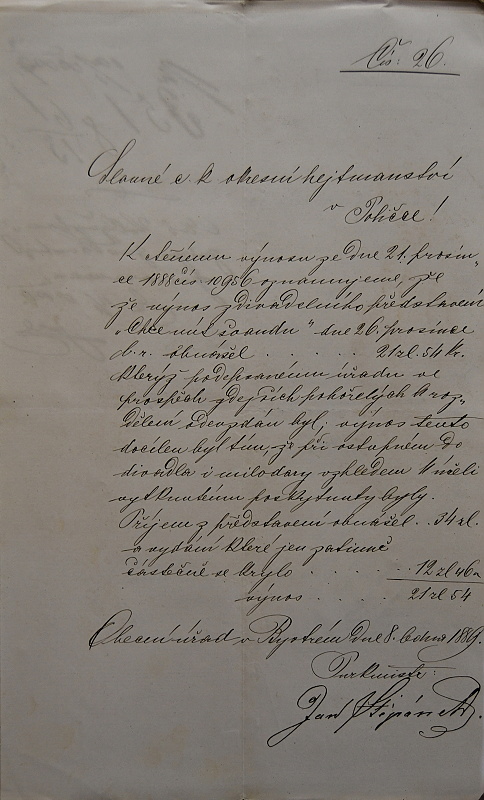 Čís: 26.
Slavné c. k. okresní hejtmanství
v Poličce!
K ctěnému výnosu ze dne 21. prosin-
ce 1888 čís 10956 oznamujeme, že
že výnos z divadelního představení
„Chce mít švandu“ dne 26. prosince
b.r. obnášel . . . . . 21 zl. 54 kr.
kterýž podepsanému úřadu ve
prospěch zdejších pohořelých k roz-
dělem odevzdán byl; výnos tento
docílen byl tím, že při vstupném do
divadla i milodary vzhledem k účeli
vytknutému poskytnuty byly.
Příjem z představení obnášel . . 34 zl.
a vydání které jen patimě
částečně se krylo . . . . . . 12 zl 46
výnos . . . . 21 zl 54
Obecní úřad v Bystrém dne 8. ledna 1889.
Purkmistr:
Jan Štěpánek